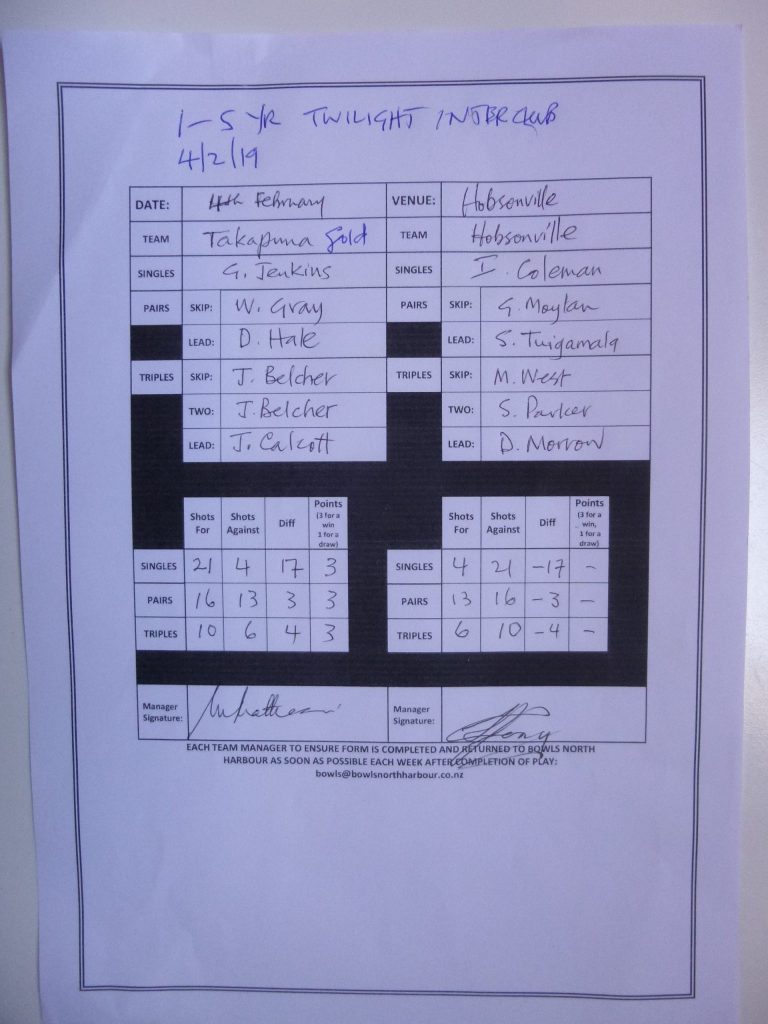 1-5 YR TWILIGHT INTERCLUB
4/2/19
DATE: 4th February VENUE: Hobsonville
TEAM Takapuna Gold TEAM Hobsonville
SINGLES G. Jenkins SINGLES I. Coleman
PAIRS SKIP: W. Gray PAIRS SKIP: G. Moylan
LEAD: D. Hale LEAD: S. Tuigamala
TRIPLES SKIP: J. Belcher TRIPLES SKIP: M. West
TWO: J. Belcher TWO: S. Parker
LEAD: J. Calcott LEAD: D. Morrow
Shots For Shots Against Diff Points (3 for a win 1 for a draw) Shots For Shots Against Diff Points (3 for a win, 1 for a draw)
SINGLES 21 4 17 3 SINGLES 4 21 -17 -
PAIRS 16 13 3 3 PAIRS 13 16 -3 -
TRIPLES 10 6 4 3 TRIPLES 6 10 -4 -
Manager Signature: Manager Signature:
EACH TEAM MANAGER TO ENSURE FORM IS COMPLETED AND RETURNED TO BOWLS NORTH
HARBOUR AS SOON AS POSSIBLE EACH WEEK AFTER COMPLETION OF PLAY:
bowls@bowlsnorthharbour.co.nz